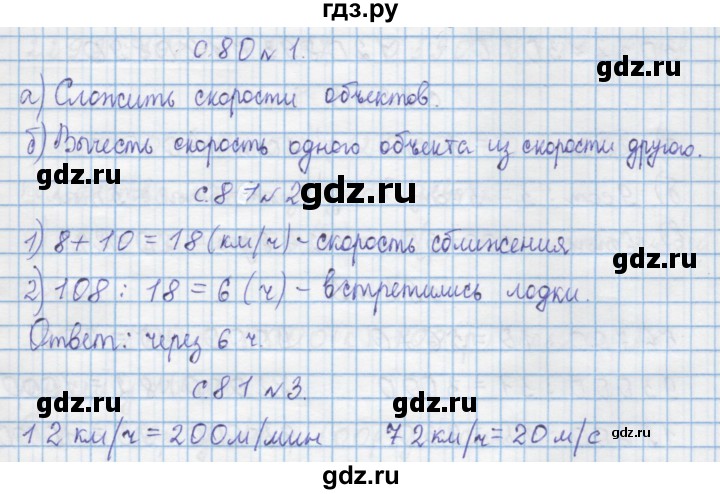 гдз.ру
с.80 № 1.
а) Сложить скорости объектов.
б) Вычесть скорость одного объекта из скорости другого.
gdz.ru
с.81 № 2
gdz.ru
1) 8 + 10 = 18 (км/ч) - скорость сближения
2) 108 : 18 = 6 (ч) - встретились лодки.
Ответ: через 6 ч.
с.81 № 3.
gdz.ru gdz.ru
12 км/ч = 200 м/мин 72 км/ч = 20 м/с
gdz.ru
gdz.ru